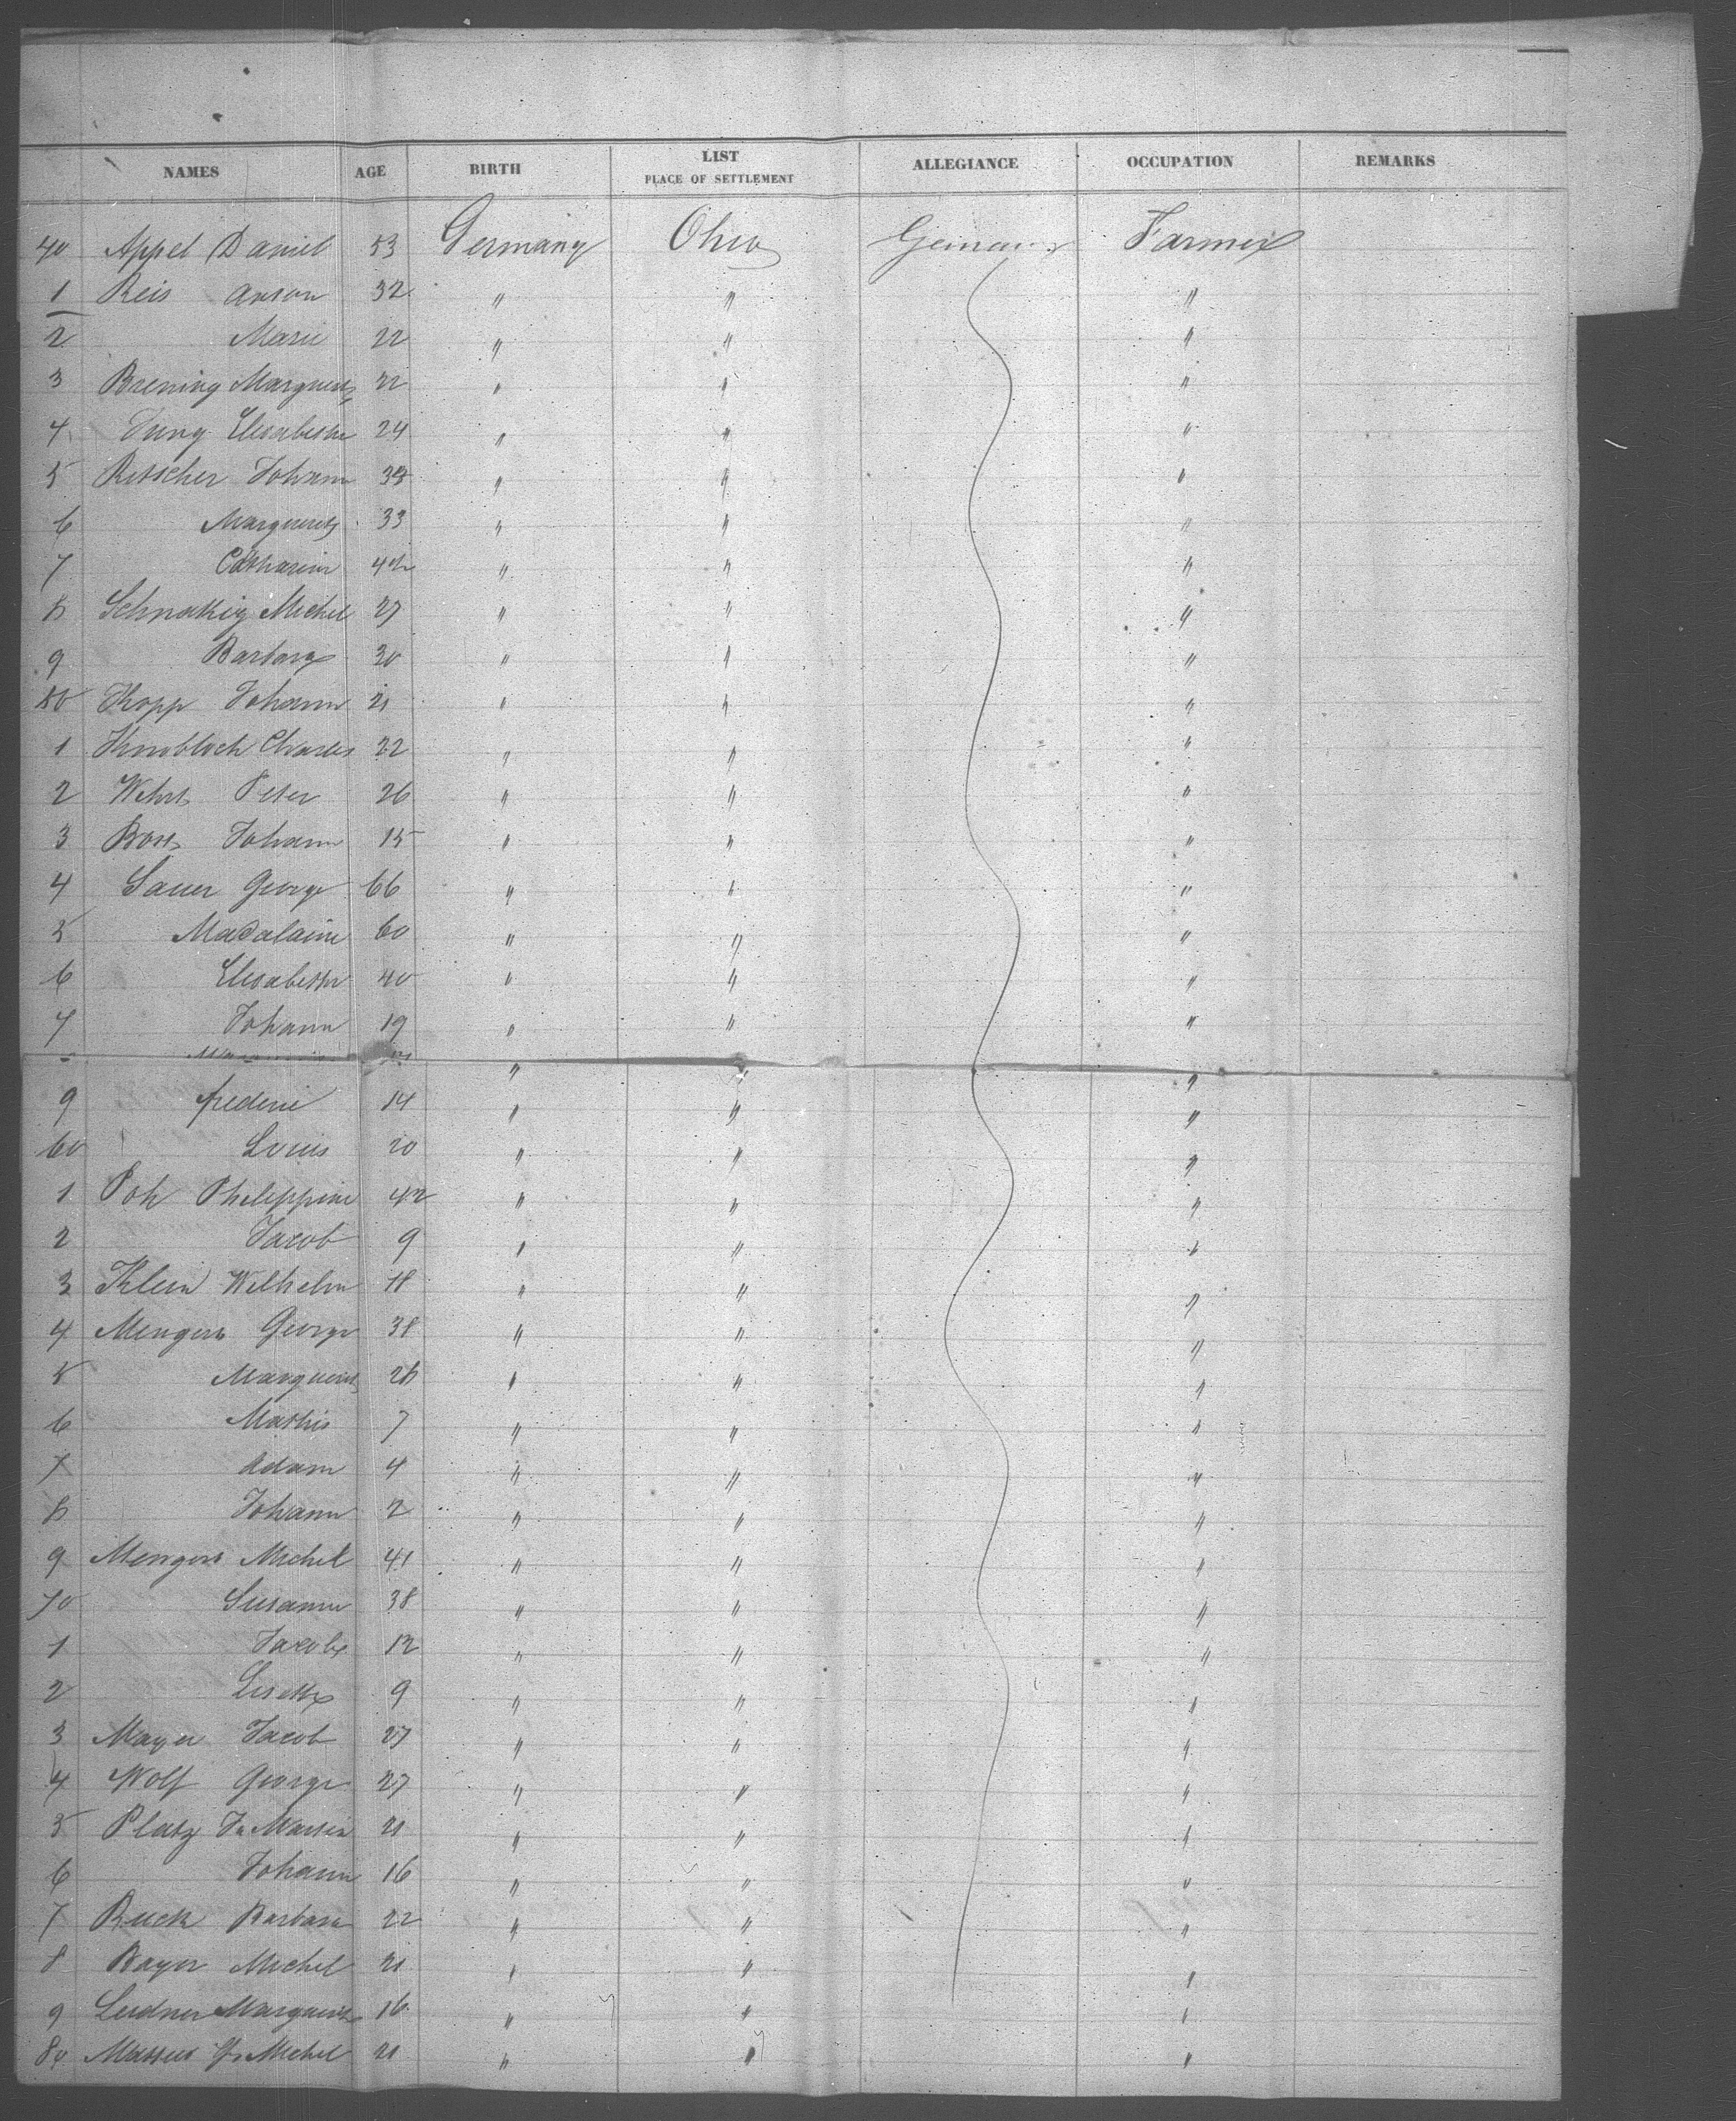 NAMES AGE BIRTH LIST PLACE OF SETTLEMENT ALLEGIANCE OCCUPATION REMARKS
40 Appel Daniel 53 Germany Ohio Germany Farmer
1 Reis Anton 32 " " "
2 Marie 22 " " "
3 Brening 22 " " "
4 Jung Elisabethe 24 " " "
5 Ritscher Johann " " "
6 33 " " "
7 Catharin " " "
8 Michel 27 " " "
9 Barbara 30 " " "
50 Kopp Johann 21 " " "
1 Knobloch Charles 22 " " "
2 Peter 26 " " "
3 Johann 15 " " "
4 Sauer George 66 " " "
5 Madalaine 60 " " "
6 Elisabethe 40 " " "
7 Johann 19 " " "
" " "
9 frederic 14 " " "
60 Louis 20 " " "
1 Poh Philippine 42 " " "
2 Jacob 9 " " "
3 Klein Wilhelm 18 " " "
4 George 38 " " "
5 28 " " "
6 Mathis 7 " " "
7 Adam 4 " " "
8 Johann 2 " " "
9 Michel 41 " " "
70 Susanna 38 " " "
1 12 " " "
2 Lisette 9 " " "
3 Mayer Jacob 27 " " "
4 Wolf George 27 " " "
5 Platz Martin 21 " " "
6 Johann 16 " " "
7 Ruck Barbara 22 " " "
8 Bayer Michel 21 " " "
9 Leidner 16 " " "
80 Michel 21 " " "